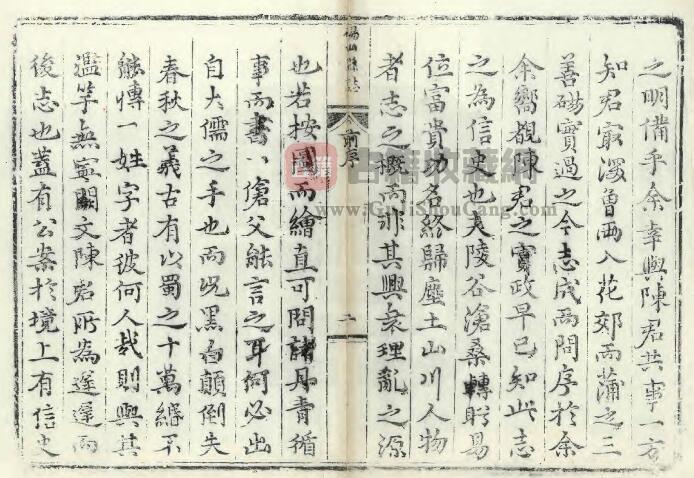 之明備乎余幸與陳君共事一方
知君㝡深曾兩入花郊而蒲之三
善磋實過之今志成而問序於余
余嚮覩陳君之實政早已知此志
之為信史也夫陵谷滄桑轉盻易
位富貴功名終歸塵土山川人物
者志之概而非其興衰理亂之源
碭山縣志
前序
二
也若按圖而繪直可問諸丹青循
事而書以傖父能言之耳何必出
自大儒之手也而况黑白顛倒失
春秋之義古有以蜀之十萬緡不
能傳一姓字者彼何人哉則與其
濫竽無寧闕文陳君所為遲遲而
後志也蓋有公案於境上有信史
古籍收藏网
www.GuJiShouCang.com